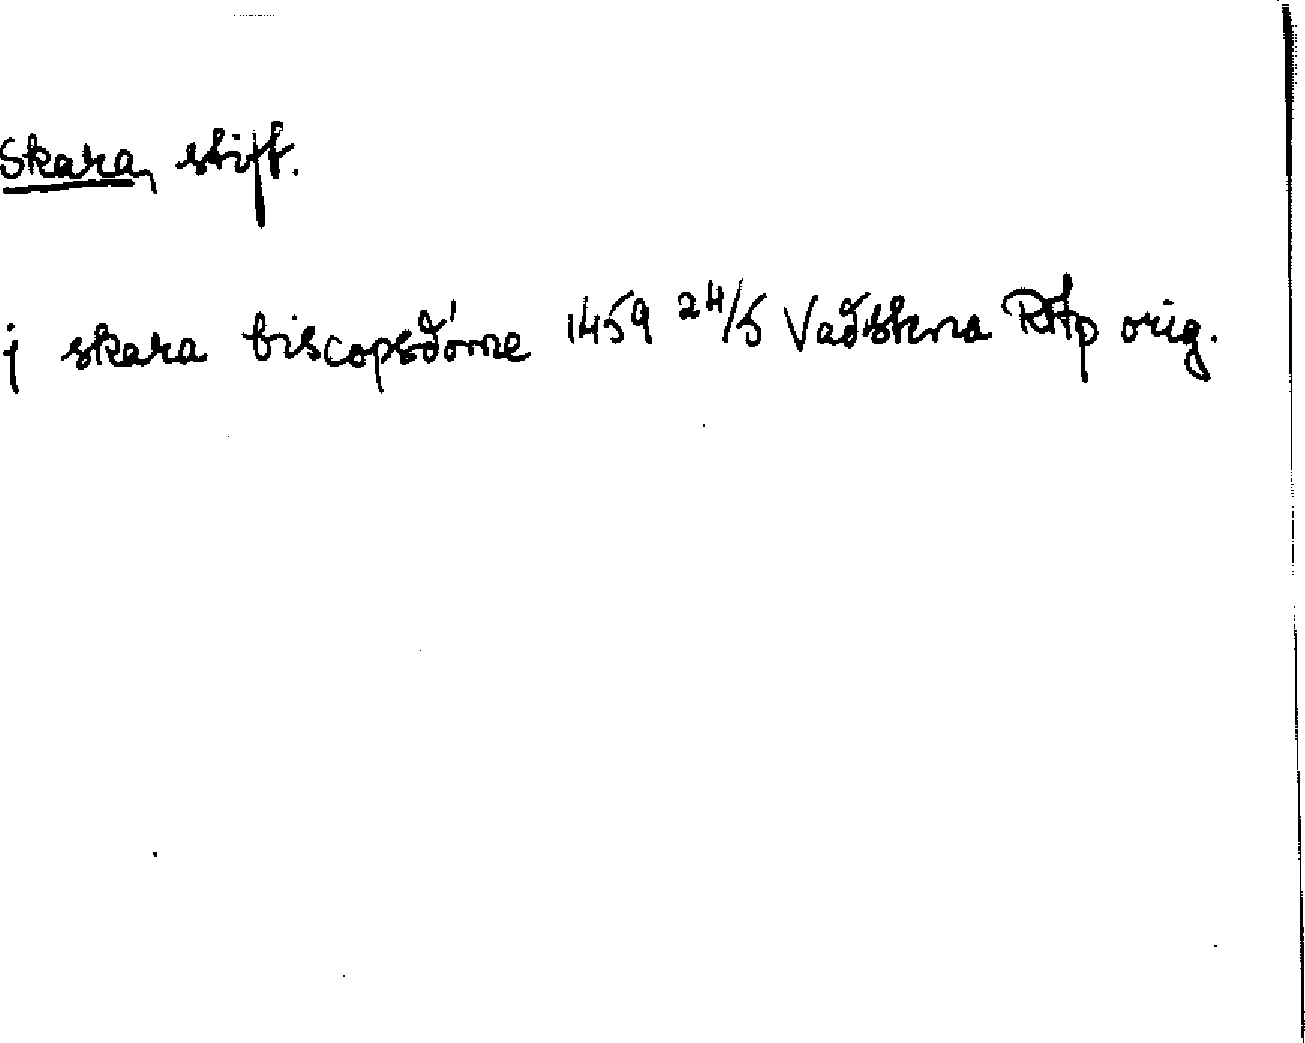 Skara, stift.
j skara biscopsdóme 1459 24/5 Vadstena RAp orig.